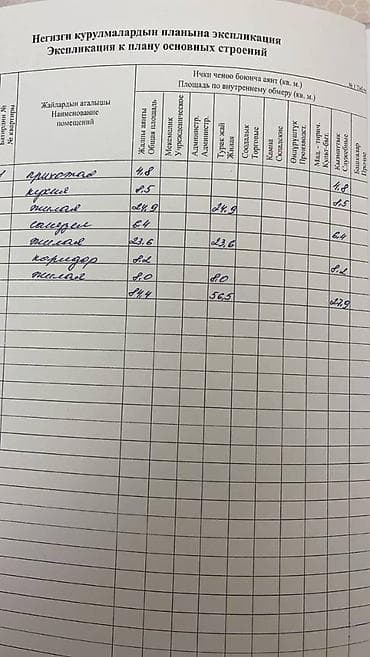 Негизги курулмалардын планына экспликация
Экспликация к плану основных строений
№ квартиры
Жайлардын аталышы
Наименование
помещений
Ички ченөө боюнча аянт (кв. м.)
Площадь по внутреннему обмеру (кв. м.)
Жалпы аянты
Общая площадь
Мекемелик
Учрежденческое
Администр.
Администр.
Турак жай
Жилая
Соодалык
Торговые
Кампа
Складские
Өндүрүштүк
Производст.
Мад. - тирич.
Культ-быт.
Кызматтык
Служебные
Башкалар
Прочие
1 прихожая 4.8 4.8
кухня 8.5 8.5
жилая 24.9 24.9
санузел 6.4 6.4
жилая 23.6 23.6
коридор 8.2 8.2
жилая 8.0 8.0
84.4 56.5 27.9